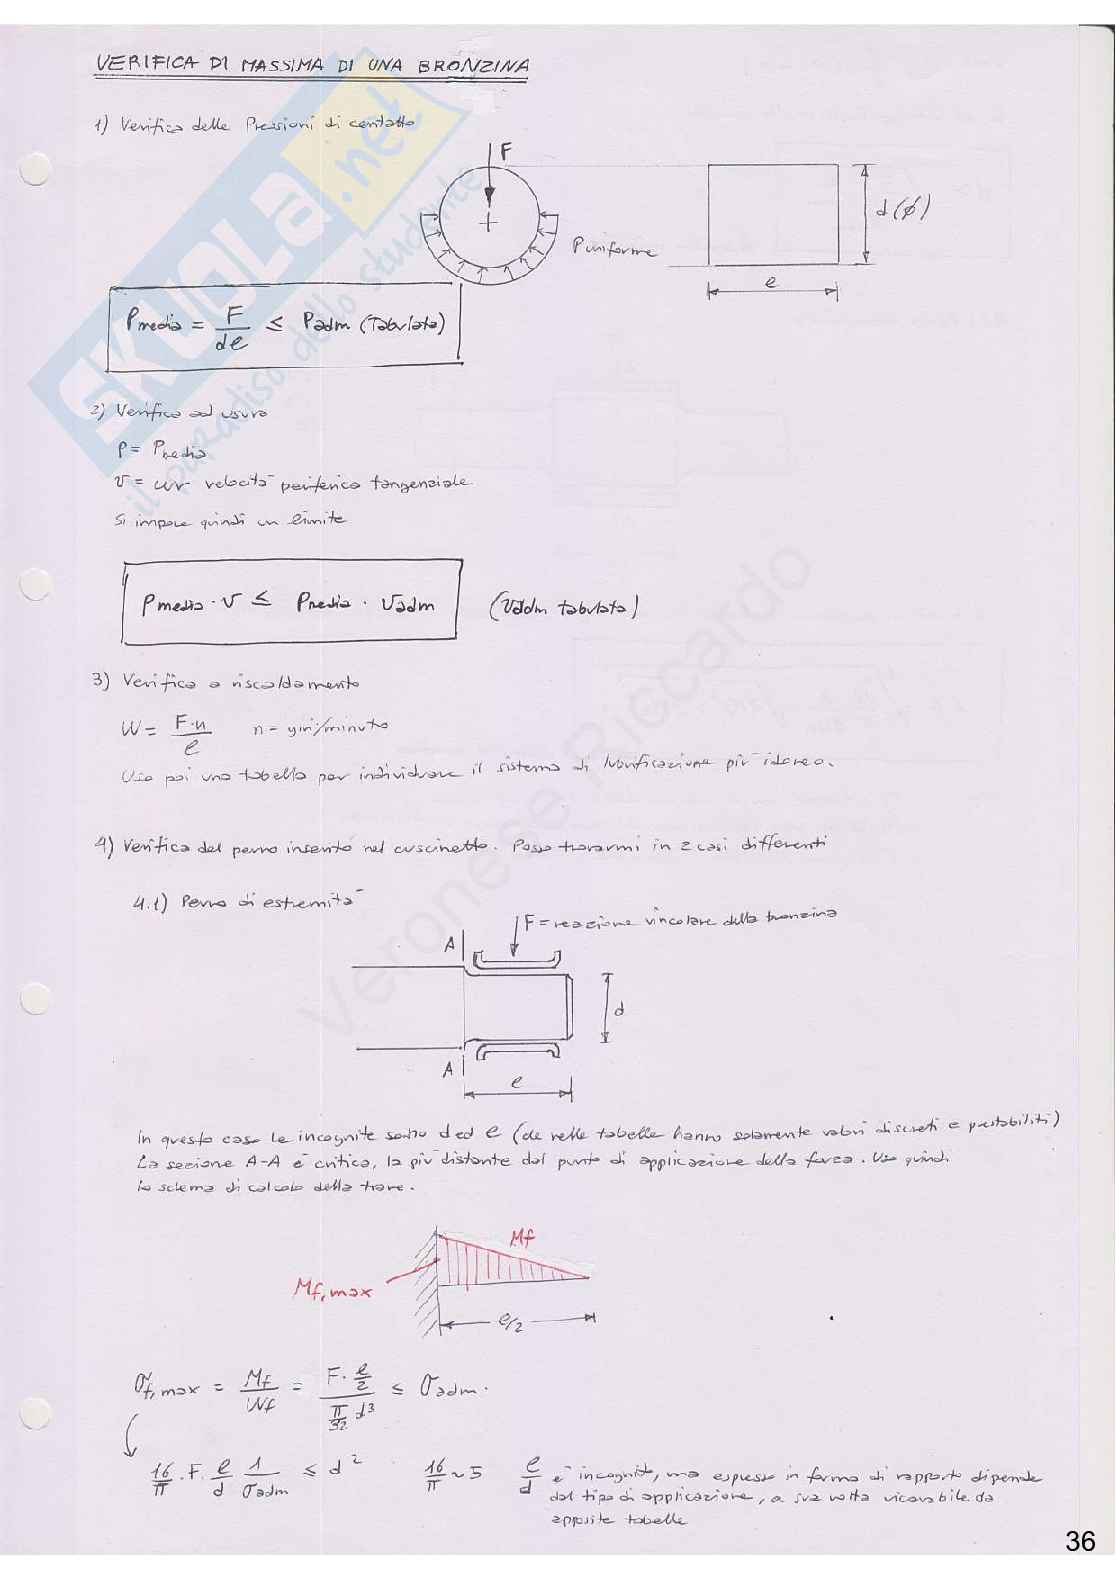 VERIFICA DI MASSIMA DI UNA BRONZINA
1) Verifica delle Pressioni di contatto
F
P uniforme
d (ϕ)
l
Pmedia = F/dl ≤ Padm (Tabulata)
2) Verifica ad usura
P = Pmedia
v = ωr velocità periferica tangenziale
Si impone quindi un limite
Pmedia · v ≤ Pmedia · vadm (Vadm tabulata)
3) Verifica a riscaldamento
W = F·n/l n = giri/minuto
Uso poi una tabella per individuare il sistema di lubrificazione più idoneo.
4) Verifica del perno inserito nel cuscinetto. Posso trovarmi in 2 casi differenti
4.1) Perno di estremità
F = reazione vincolare della bronzina
A
d
A
l
In questo caso le incognite sono d ed l (che nelle tabelle hanno solamente valori discreti e prestabiliti)
La sezione A-A è critica, la più distante dal punto di applicazione della forza. Uso quindi
lo schema di calcolo della trave.
Mf
Mf,max
l/2
σf,max = Mf/Wf = F·l/2 / π/32 d³ ≤ σadm.
16/π · F · l/d 1/σadm ≤ d² 16/π ~ 5 l/d è incognito, ma espresso in forma di rapporto dipende
dal tipo di applicazione, a sua volta ricavabile da
apposite tabelle
36
SKUOLA.net
il paradiso dello studente
Veronese Riccardo